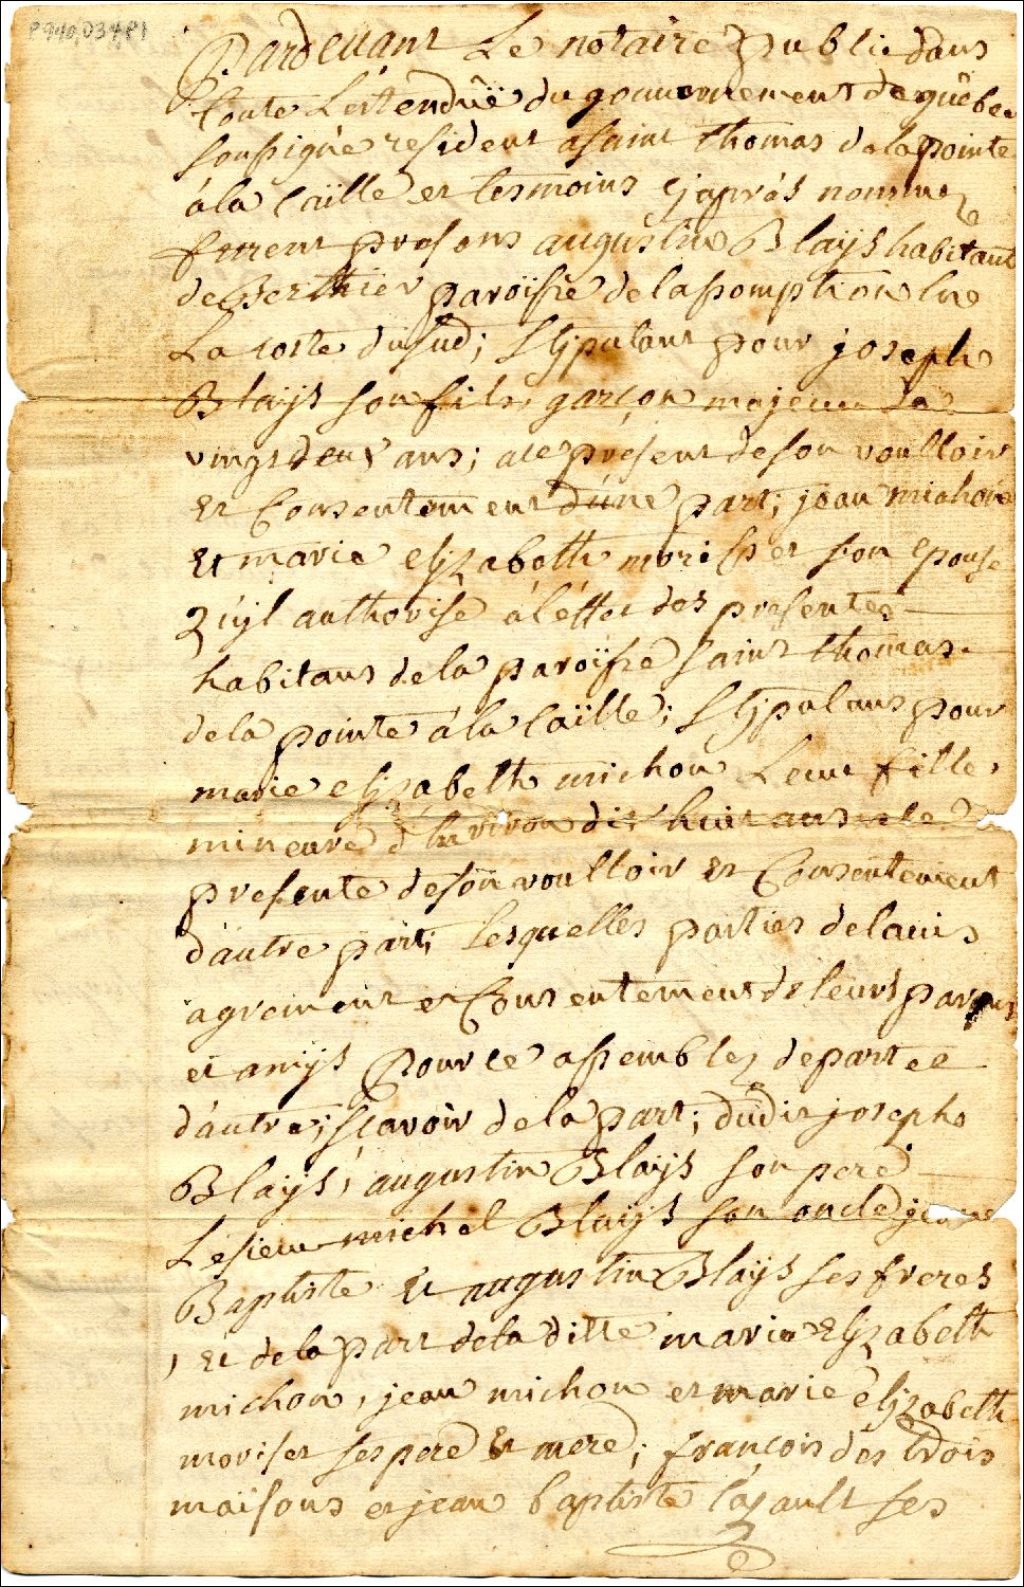 P940,D34,P1
Pardevant Le notaire public dans
toute L'estenduë du gouuernement de quêbec
soussigné resident asaint thomas dela pointe
à la Caille et tesmoins cj aprés nommez
furent presens augustin Blaijs habitant
de Berthier paroisse de lassomption En
La coste du sud; Stjpulant pour joseph
Blaijs son fils, garçon majeur de
vingt deux ans; ace présent de son voulloir
Et Consentement d'úne part; jean michon
Et marie elizabeth morisset son Epouse
quijl authorise á l'éffet des presentes
habitans de la paroisse saint thomas
de la pointe á la Caille; Stjpulans pour
marie elizabeth michon Leur fille
mineure d'Environ dix huit ans ace
presente de son voulloir Et Consentement
d'autre part; Lesquelles parties de lauis
agrement et Consentement de leurs parens
et amijs Pour ce assemblez de part et
d'autre; scavoir de la part; dudit joseph
Blaijs, augustin Blaijs son pere
Le sieur michel Blaijs son oncle jean
Baptiste Et augustin Blaijs ses freres
, Et de la part de la ditte marie Elizabeth
michon, jean michon et marie elizabeth
morisset ses pere Et mere; françois des trois
maisons et jean baptiste Cazault ses